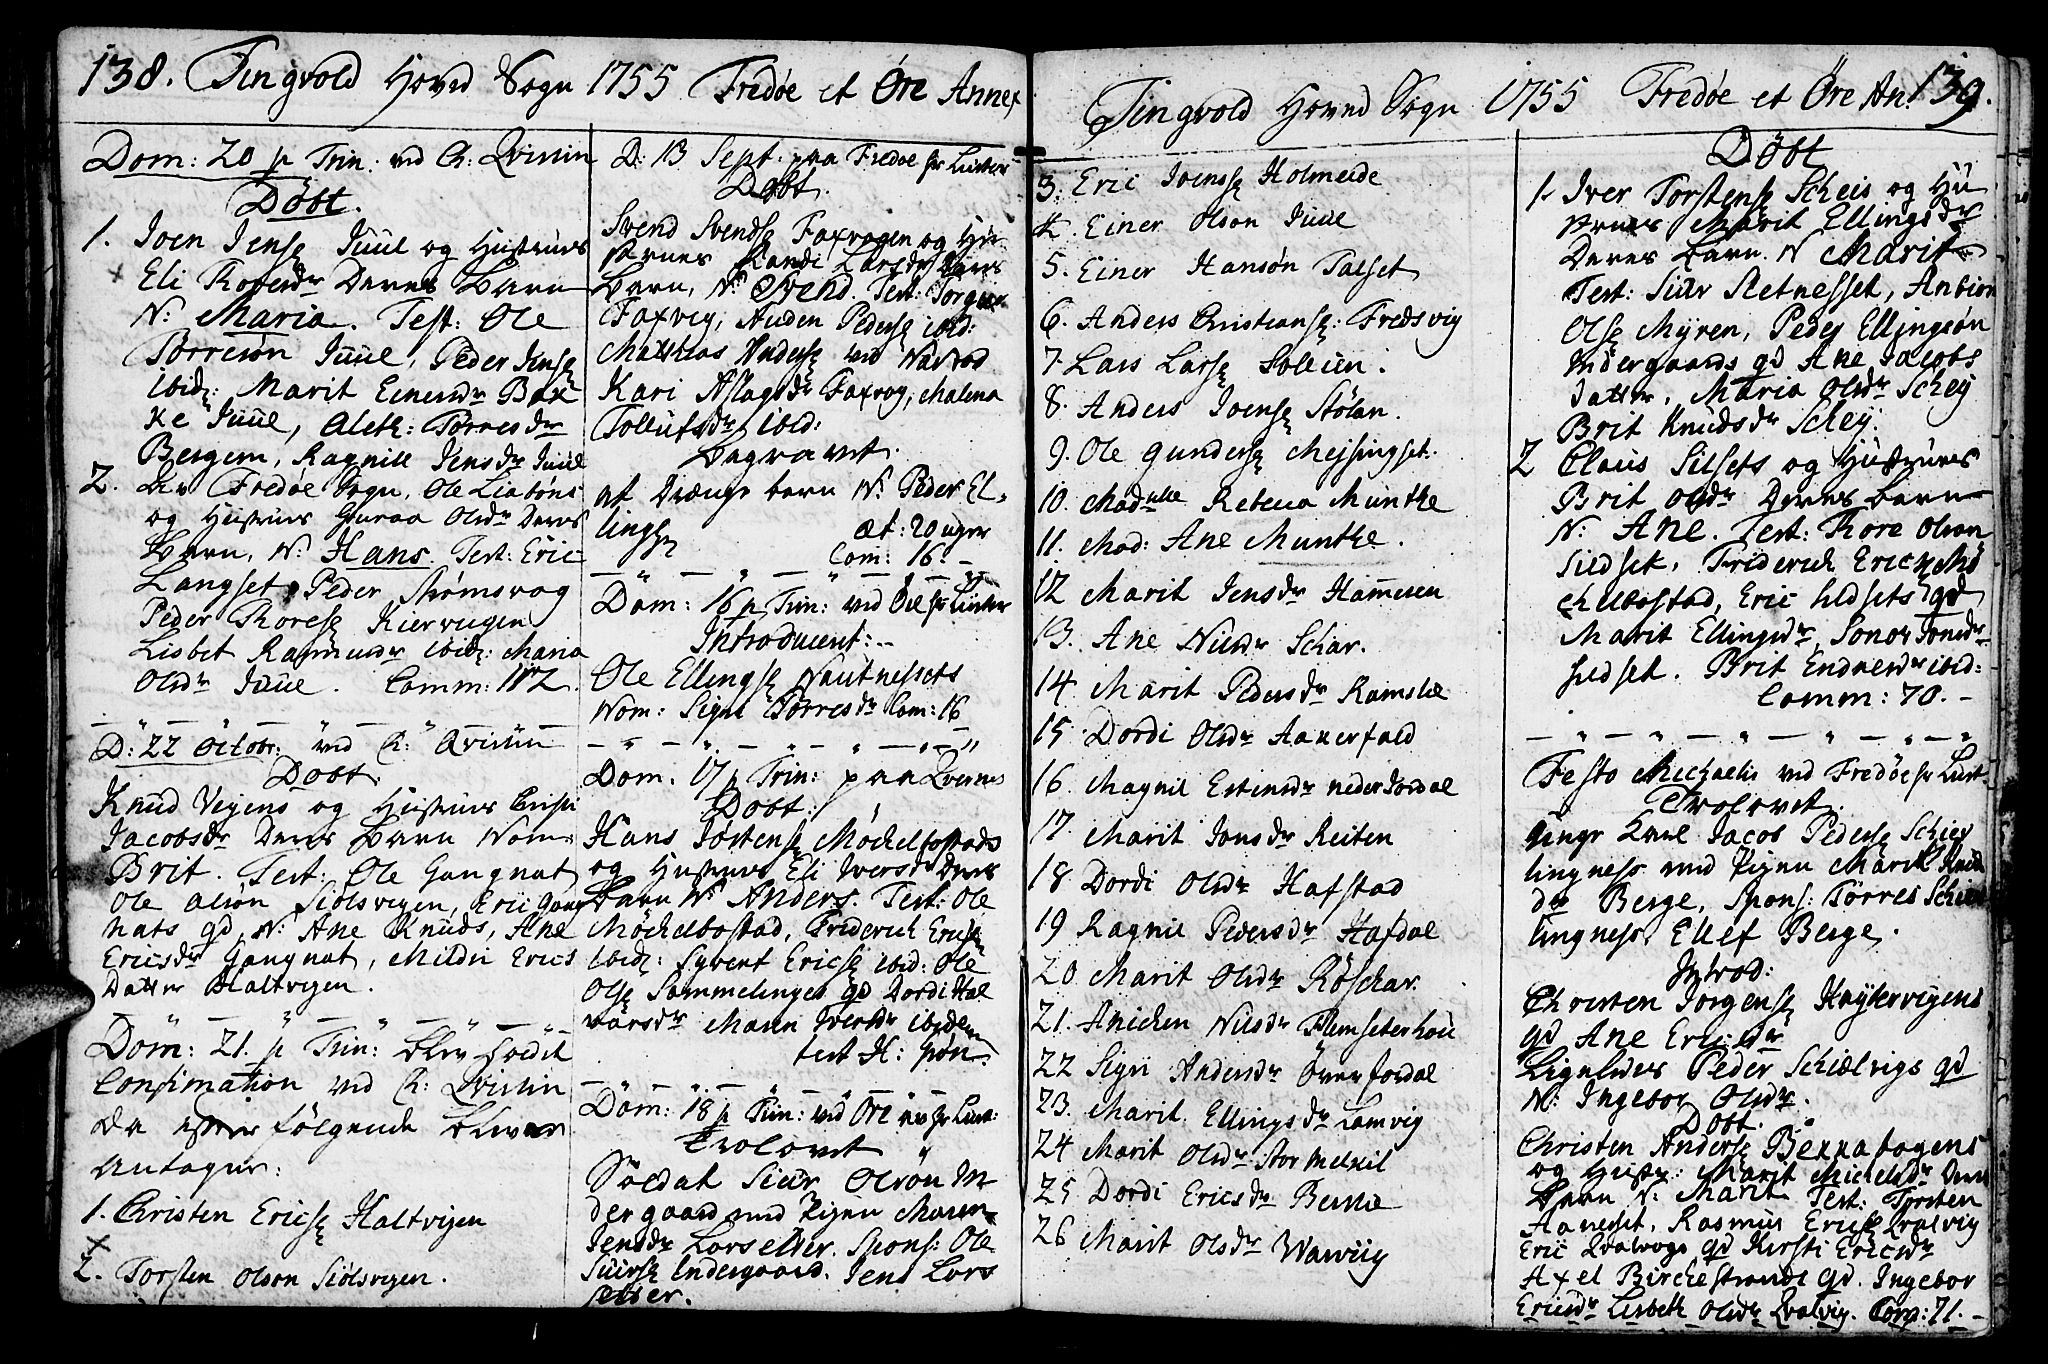 138. Tingvold Hoved Sogn 1755 Fredøe et Øre Annex
Dom: 20 p Trin: ved Ch: Qvistin
Döbt.
1. Joen Jensø Juul og Hustrues
Eli Roersdr Deres Barn
N: Maria. Test: Ole
Törresön Juul, Peder Jensø
ibid: Marit Einersdr Bax
ke Juul, Aleth: Törresdr
Bergem, Ragnill Jensdr Juul
2. Af Fredöe Sogn, Ole Liaböns
og Hustrues Guroa Olsdr Deres
Barn, N: Hans. Test: Eric
Langset, Peder Strömsvog
Peder Thoresø Kiervugen
Lisbet Rasmusdr ibid: Maria
Olsdr Juul. Comm: 112.
D: 22 Octobr: ved Ch: Qvistin
Dobt.
Knud Vegens og Hustrues Cristi
Jacobsdr Deres Barn Nom:
Brit. Test: Ole Gangnat
Ole Olsön Siölsvigen, Eric Gang
nats qd, N: Ane Knuds, Ane
Ericsdr Gangnat, Mildri Erics
Datter Haltvigen.
Dom: 21. p Trin: blev holdt
Confimation ved Ch: Qvistin
da efter fölgende blever
Antagne:
1. Christen Ericsø Haltvigen
2. Torsten Olson Siölsvigen.
D: 13 Sept. paa Fredøe hr Linter
Dobt.
Svend Svendsø Faxvogen og Hu-
struues Randi Larsdr Deres
Barn, N: Svend. Test: Torgier
Faxveg, Auden Pedersø ibid:
Matthias Andersø ved
Kari Aslagsdr Faxvog, Malena
Tollufsdr ibid:
Begravet.
et Drænge barn N: Peder El-
lingsø æt: 20 uger
Com: 16.
Dom: 16 p Trin: ved Öre hr Linter
Introduceret:
Ole Ellingsø Nautnessets
Nom: Signi Törresdr Com: 16
Dom. 17 p Trin: paa Qvernes
Dobt.
Hans Jöstensø Möchelbostads
og Hustrues Eli Iversdr Deres
Barn N: Anders. Test: Ole
Möchelbostad, Friderich Ericsø
ibid: Syvert Ericsø ibid: Ole
Olsø Sammelinges qd Dordi Hal
vorsdr Maren Iversdr ibidem
test H: pön
Dom: 18 p Trin: ved Öre af hr Lint:
Trolovet
Soldat Siur Olsön In
dergaard med Pigen Maren
Jensdr Lorsetter. Spons: Ole
Siursø Endergaard. Jens Lors
setter.
Tingvold Hoved Sogn 1755 Fredøe et Öre An: 139.
3. Eric Joensø Holmeide
4. Einer Olson Juul
5. Einer Hansön Talset
6. Anders Christiansø: Fredsvig
7. Lars Larsø Solliin.
8. Anders Joensø Stölan.
9. Ole Gundersø Mejsingset.
10. Mad:elle Rebecca Munthe
11. Mad: Ane Munthe.
12 Marit Jensdr Hammesen
13. Ane Nilsdr Schar.
14 Marit Pedersdr Ramslie
15 Dordi Olsdr Aakerfald
16 Magnil Estensdr neder Jordal
17. Marit Jonsdr Reiten
18 Dordi Olsdr Hafstad
19 Ragnil Pedersdr Hafdal
20 Marit Olsdr Röschar.
21. Anichen Nilsdr Flemseterhou
22 Sigri Andersdr Över Jordal
23. Marit Ellingsdr Lamvig
24 Marit Olsdr Stor Melkil
25 Dordi Ericsdr Berslie
26 Marit Olsdr Warviig
Döbt
1. Iver Torstensø Scheis og Hu
struues Marit Ellingsdr
Deres Barn. N Marit
Test: Siur Retnesset, Anbiörn
Olsø Myren, Peder Ellingsön
Indergaards qd Ane Jacobs
datter. Maria Olsdr Schey
Brit Knudsdr Schey.
2 Claus Silsets og Hustrues
Brit Olsdr Deres Barn
N: Ane. Test: Thore Olson
Sildset, Friderich Ericsø Mö
chelbostad, Eric Sildsets qd
Marit Ellingsdr, Jonsdr
Sildset. Brit Endresdr ibid:
Comm: 70.
Festo Michaelis ved Fredöe hr Lint-
Trolovet.
Unge Karl Jacob Pedersø Schiey
lingness med Pigen Marit Knuds
dr Berge, Spons: Törres Schiey
lingness, Ellef Berge.
Introd:
Christen Jörgensø Höjtervigens
qd Ane Ericsdr
Ligeledes Peder Schiælvigs qd
N: Ingebor Olsdr.
Döbt.
Christen Andersø Bexxafogens
og Hustr: Marit Michelsdr Deres
Barn N: Marit Test: Torsten
Aanesset, Rasmus Ericsø Qvalvig
Eric Qvalvogs qd Kirsti Ericsdr
Axel Birchestrands qd. Ingebor
Ericsdr Lisbeth Olsdr Qvalvig. Com: 71.